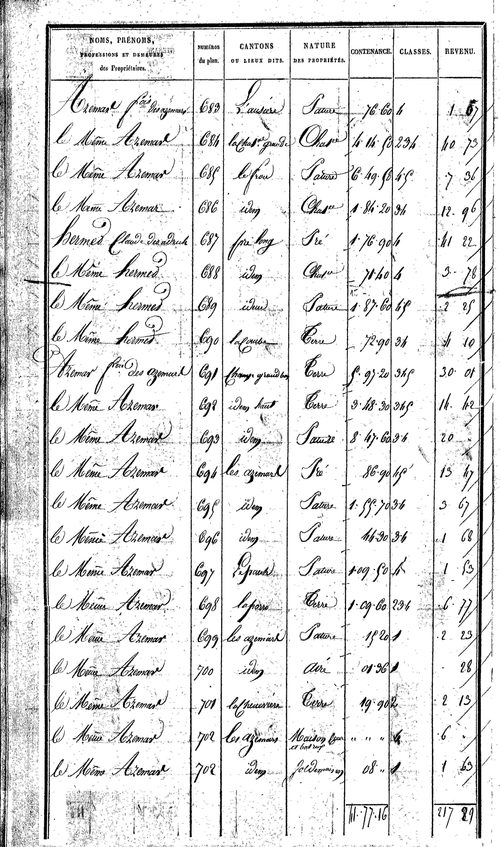 NOMS, PRÉNOMS, PROFESSIONS ET DEMEURES des Propriétaires. NUMÉROS du plan. CANTONS OU LIEUX DITS. NATURE DES PROPRIÉTÉS. CONTENANCE. CLASSES. REVENU.
Azemar des azemars 683 Pature 76.60 4 1 67
le Même Azemar 684 Chatre 4.14.50 234 40 73
le Même Azemar 685 le frou Pature 6.49.50 45 7 36
le Même Azemar 686 idem Chatre 1.84.20 34 12 96
hermed Claude 687 pré long Pré 1.76.90 4 41 22
le Même hermed 688 idem Chatre 71.40 4 3 78
le Même hermed 689 idem Pature 1.87.60 45 2 25
le Même hermed 690 Terre 72.90 34 4 10
Azemar des azemard 691 Terre 5.97.20 345 30 01
le Même Azemar 692 idem haut Terre 3.48.30 345 14 42
le Même Azemar 693 idem Pature 8.47.60 34 20
le Même Azemar 694 les azemard Pré 86.90 45 13 47
le Même Azemar 695 idem Pature 1.55.70 34 3 67
le Même Azemar 696 idem Pature 44.30 34 1 68
le Même Azemar 697 Pature 1.09.50 4 1 53
le Même Azemar 698 Terre 1.09.60 234 6 77
le Même Azemar 699 les azemard Pature 15 20 1 2 23
le Même Azemar 700 idem airé 01.36 1 28
le Même Azemar 701 Terre 19.90 2 2 13
le Même Azemar 702 les azemars Maison 6 6
le Même Azemar 702 idem 08 1 1 63
11.77.16 217 29